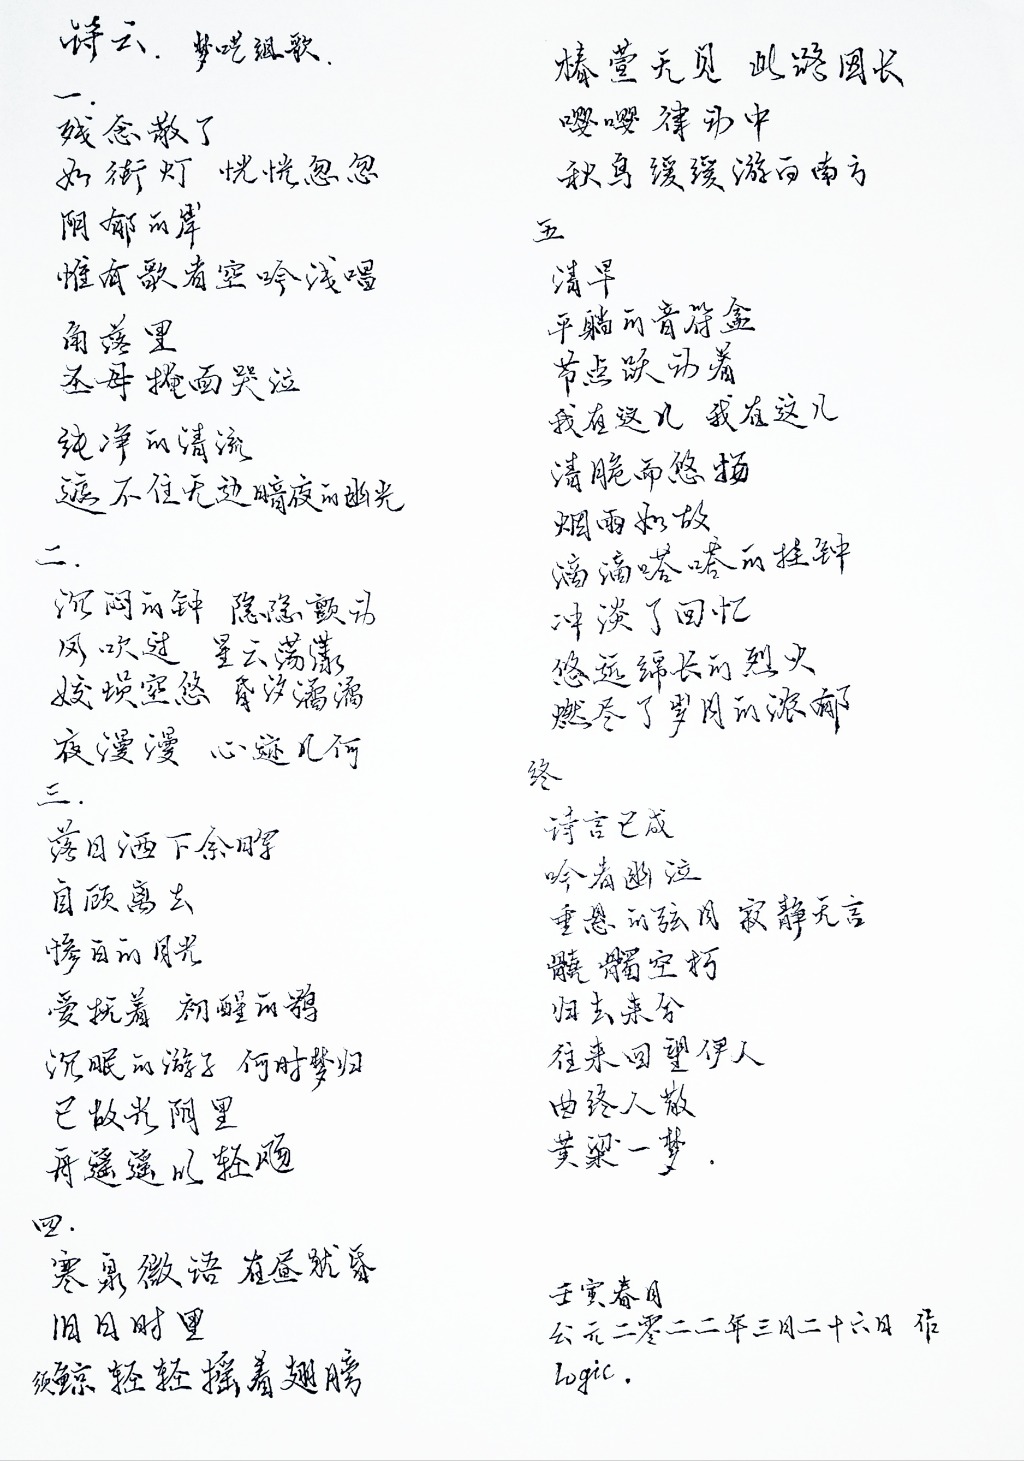 诗云. 梦呓组歌.
一.
残念散了
如街灯 恍恍忽忽
阴郁的岸
惟有歌者空吟浅唱
角落里
圣母掩面哭泣
纯净的清流
遮不住无边暗夜的幽光
二.
沉闷的钟 隐隐颤动
风吹过 星云荡漾
姣埙空悠 昏汐潏潏
夜漫漫 心迹几何
三.
落日洒下余晖
自顾离去
惨白的月光
爱抚着 初醒的鹗
沉眠的游子 何时梦归
已故光阴里
舟遥遥以轻飏
四.
寒泉微语 在昼就昏
旧日时里
须鲸轻轻摇着翅膀
椿萱无见 此路因长
嘤嘤律动中
秋鸟缓缓游向南方
五
清早
平躺的音符盒
节点跃动着
我在这儿 我在这儿
清脆而悠扬
烟雨如故
滴滴嗒嗒的挂钟
冲淡了回忆
悠远绵长的烈火
燃尽了岁月的浓郁
终
诗言已成
吟者幽泣
垂悬的弦月 寂静无言
髐髑空朽
归去来兮
往来回望伊人
曲终人散
黄粱一梦.
壬寅春月
公元二零二二年三月二十六日 作
logic.